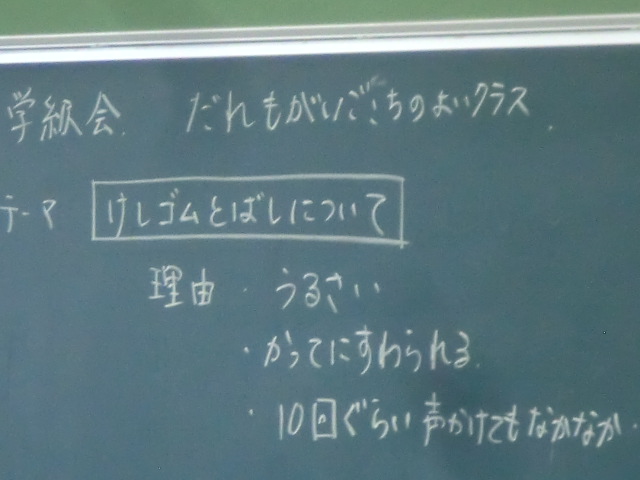 学級会. だれもがいごこちのよいクラス.
テーマ けしゴムとばしについて
理由 ・うるさい
・かってにすわられる.
・10回ぐらい声かけてもなかなか・